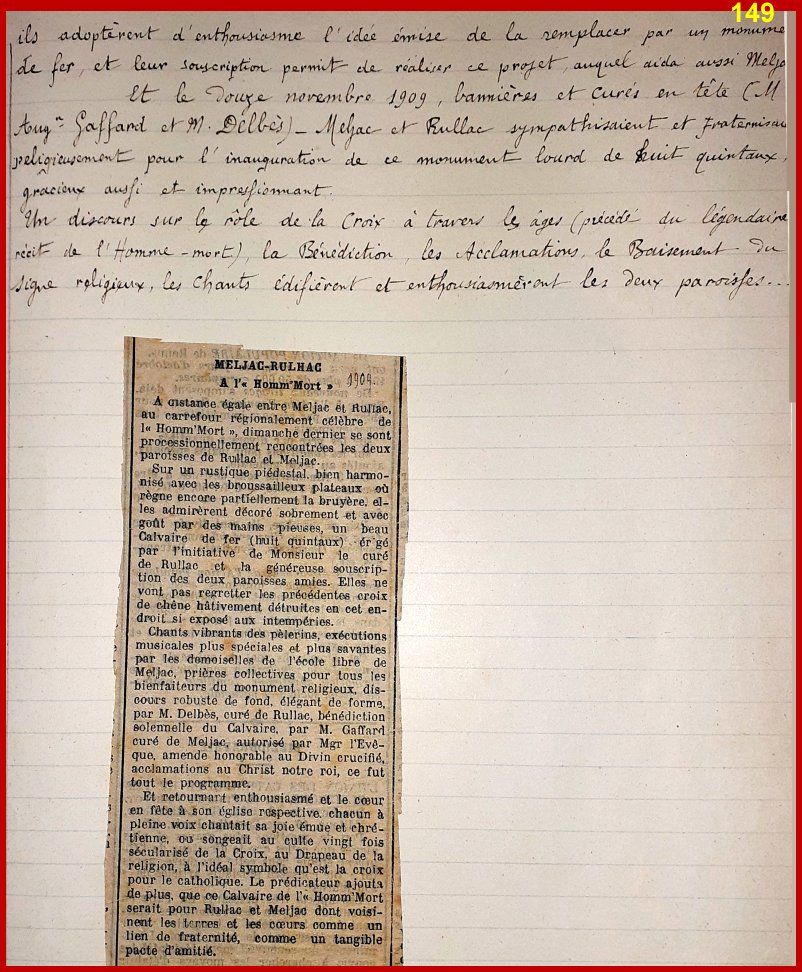 149
ils adoptèrent d'enthousiasme l'idée émise de la remplacer par un monume
de fer, et leur souscription permit de réaliser ce projet, auquel aida aussi Melja
Et le douze novembre 1909, bannières et curés en tête (M
Aug^n Gaffard et M. Delbès) - Meljac et Rullac sympathisaient et fraternisai
religieusement pour l'inauguration de ce monument lourd de huit quintaux,
grâcieux aussi et impressionnant.
Un discours sur le rôle de la Croix à travers les âges (précédé du légendaire
récit de l'Homme-mort), la Bénédiction, les Acclamations, le Baisement du
signe religieux, les Chants édifièrent et enthousiasmèrent les deux paroisses...
MELJAC-RULHAC
A l'« Homm'Mort » 1909.
A distance égale entre Meljac et Rullac,
au carrefour régionalement célèbre de
l« Homm'Mort », dimanche dernier se sont
processionnellement rencontrées les deux
paroisses de Rullac et Meljac.
Sur un rustique piédestal, bien harmo-
nisé avec les broussailleux plateaux où
règne encore partiellement la bruyère, el-
les admirèrent décoré sobrement et avec
goût par des mains pieuses, un beau
Calvaire de fer (huit quintaux) érigé
par l'initiative de Monsieur le curé
de Rullac et la généreuse souscrip-
tion des deux paroisses amies. Elles ne
vont pas regretter les précédentes croix
de chêne hâtivement détruites en cet en-
droit si exposé aux intempéries.
Chants vibrants des pèlerins, exécutions
musicales plus spéciales et plus savantes
par les demoiselles de l'école libre de
Meljac, prières collectives pour tous les
bienfaiteurs du monument religieux, dis-
cours robuste de fond, élégant de forme,
par M. Delbès, curé de Rullac, bénédiction
solennelle du Calvaire, par M. Gaffard
curé de Meljac, autorisé par Mgr l'Evê-
que, amende honorable au Divin crucifié,
acclamations au Christ notre roi, ce fut
tout le programme.
Et retournant enthousiasmé et le cœur
en fête à son église respective, chacun à
pleine voix chantait sa joie émue et chré-
tienne, ou songeait au culte vingt fois
sécularisé de la Croix, au Drapeau de la
religion, à l'idéal symbole qu'est la croix
pour le catholique. Le prédicateur ajouta
de plus, que ce Calvaire de l'« Homm'Mort
serait pour Rullac et Meljac dont voisi-
nent les terres et les cœurs comme un
lien de fraternité, comme un tangible
pacte d'amitié.